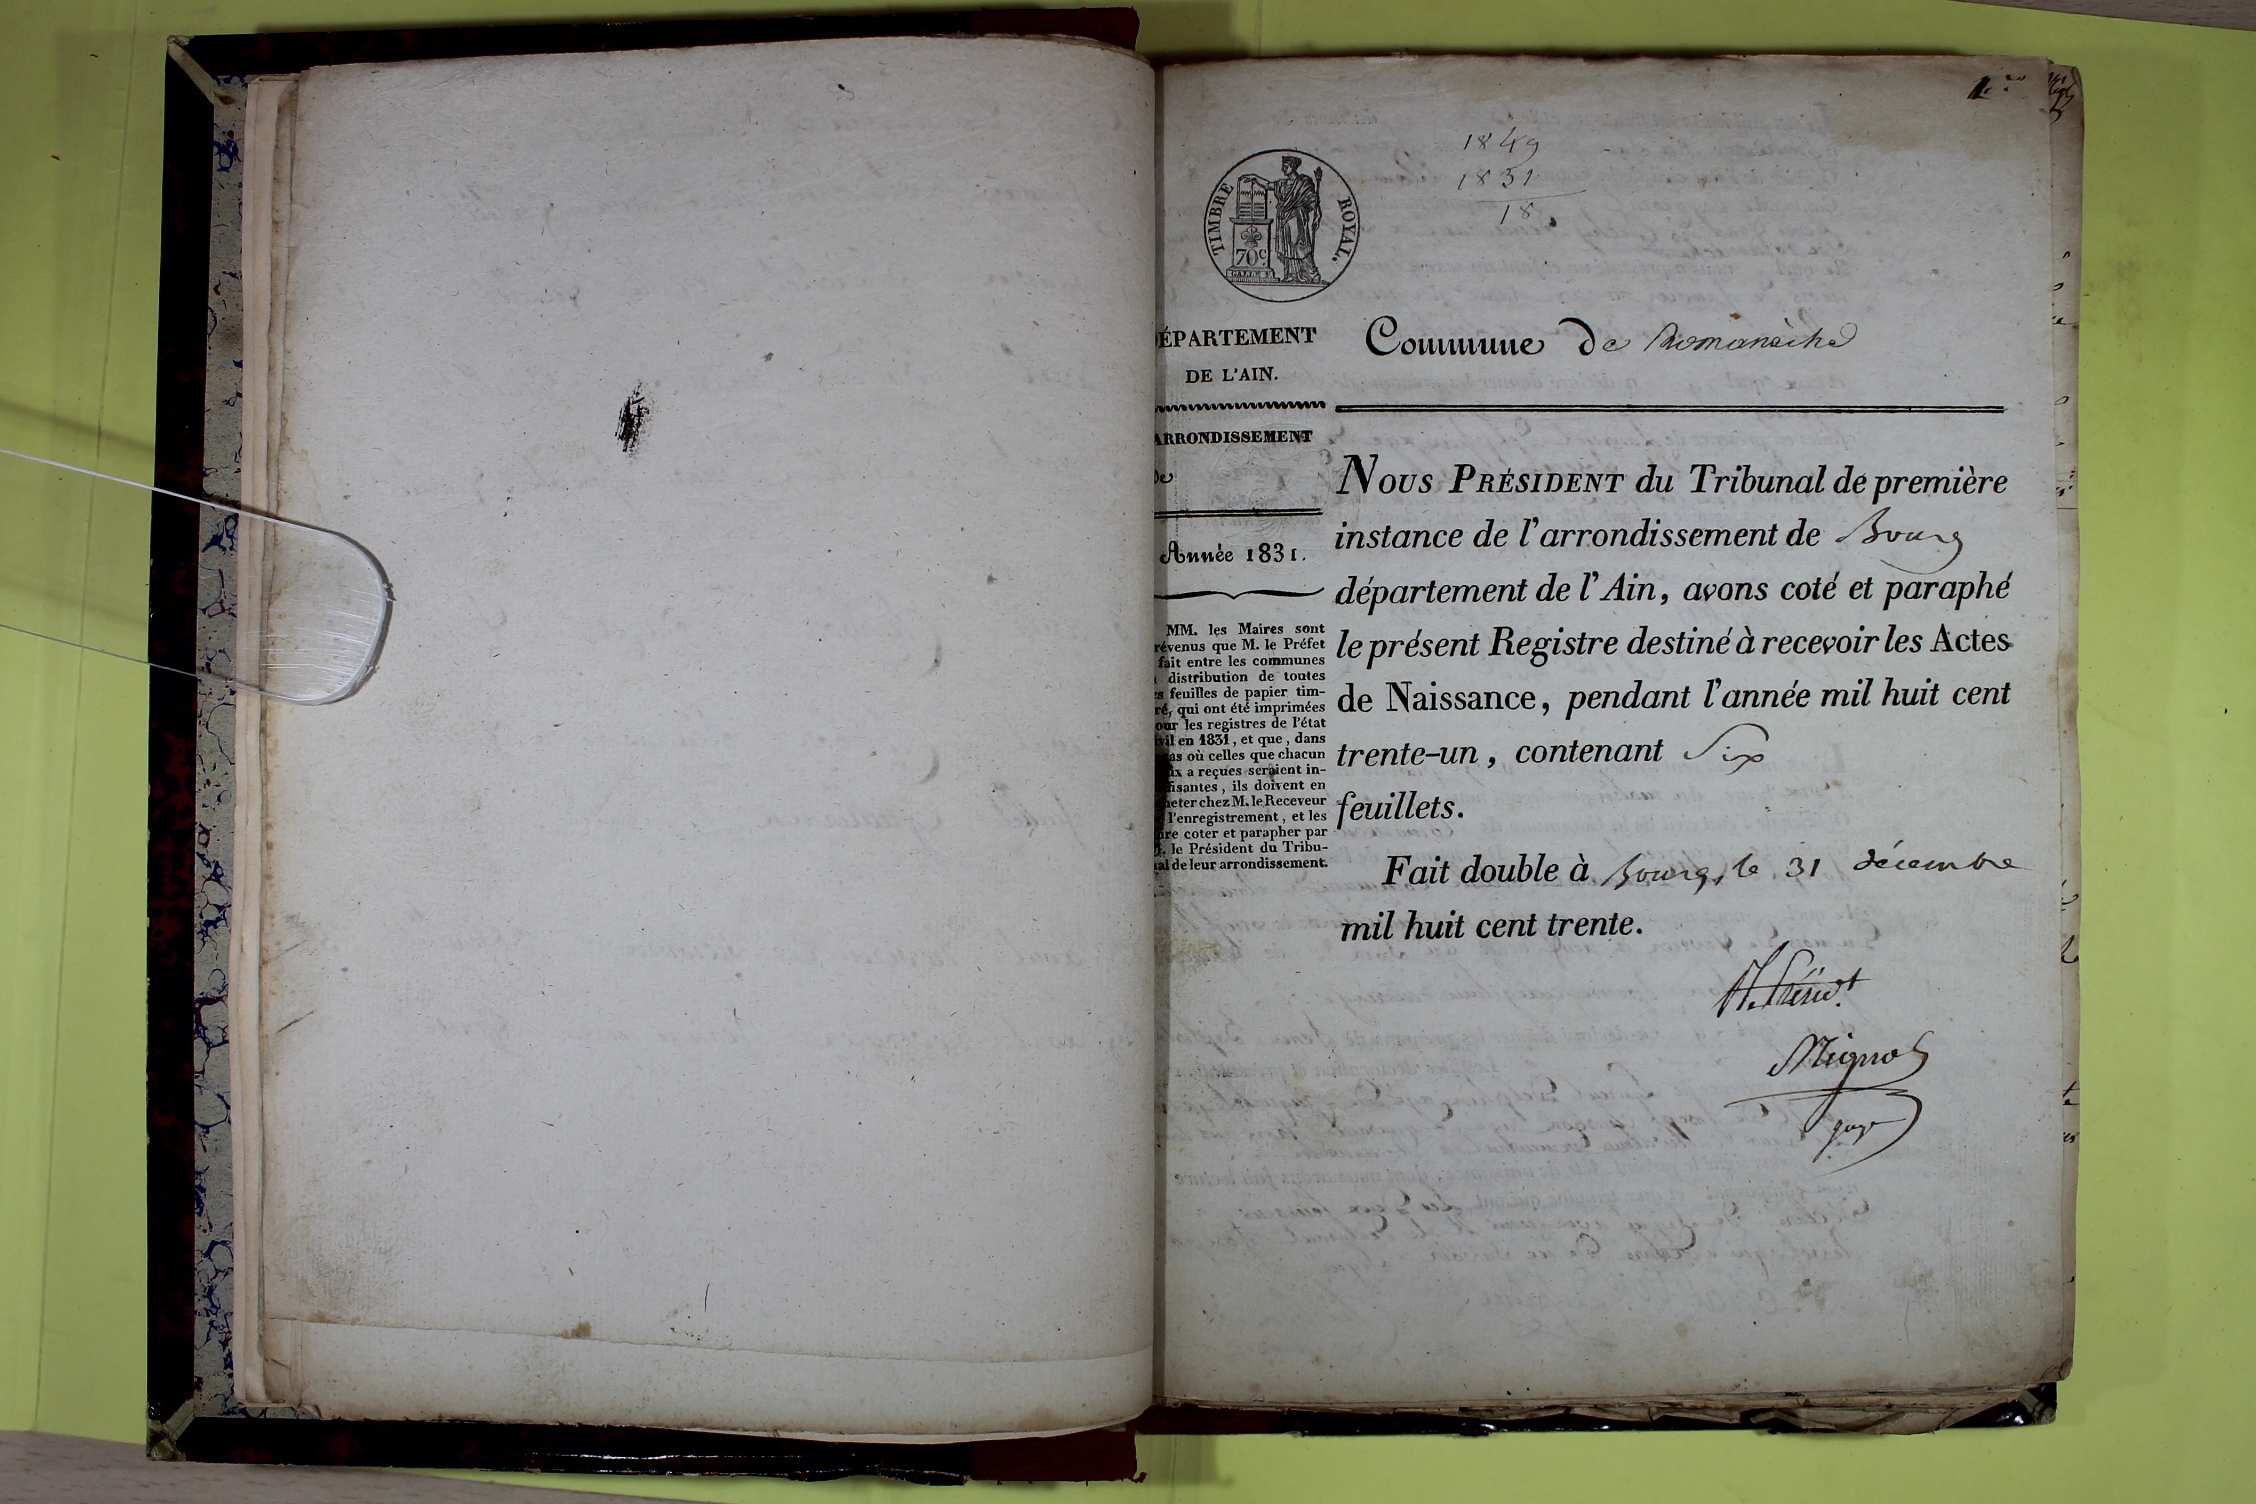 1.er
1849
1831
18
TIMBRE ROYAL.
70c.
ÉPARTEMENT
DE L'AIN.
Commune de Romanèche
ARRONDISSEMENT
de
Année 1831.
MM. les Maires sont
révenus que M. le Préfet
fait entre les communes
distribution de toutes
s feuilles de papier tim-
ré, qui ont été imprimées
our les registres de l'état
vil en 1831, et que, dans
as où celles que chacun
ux a reçues seraient in-
fisantes, ils doivent en
heter chez M. le Receveur
l'enregistrement, et les
ire coter et parapher par
. le Président du Tribu-
al de leur arrondissement.
NOUS PRÉSIDENT du Tribunal de première
instance de l'arrondissement de Bourg
département de l'Ain, avons coté et paraphé
le présent Registre destiné à recevoir les Actes
de Naissance, pendant l'année mil huit cent
trente-un, contenant Six
feuillets.
Fait double à Bourg, le 31 décembre
mil huit cent trente.
Mignot
juge